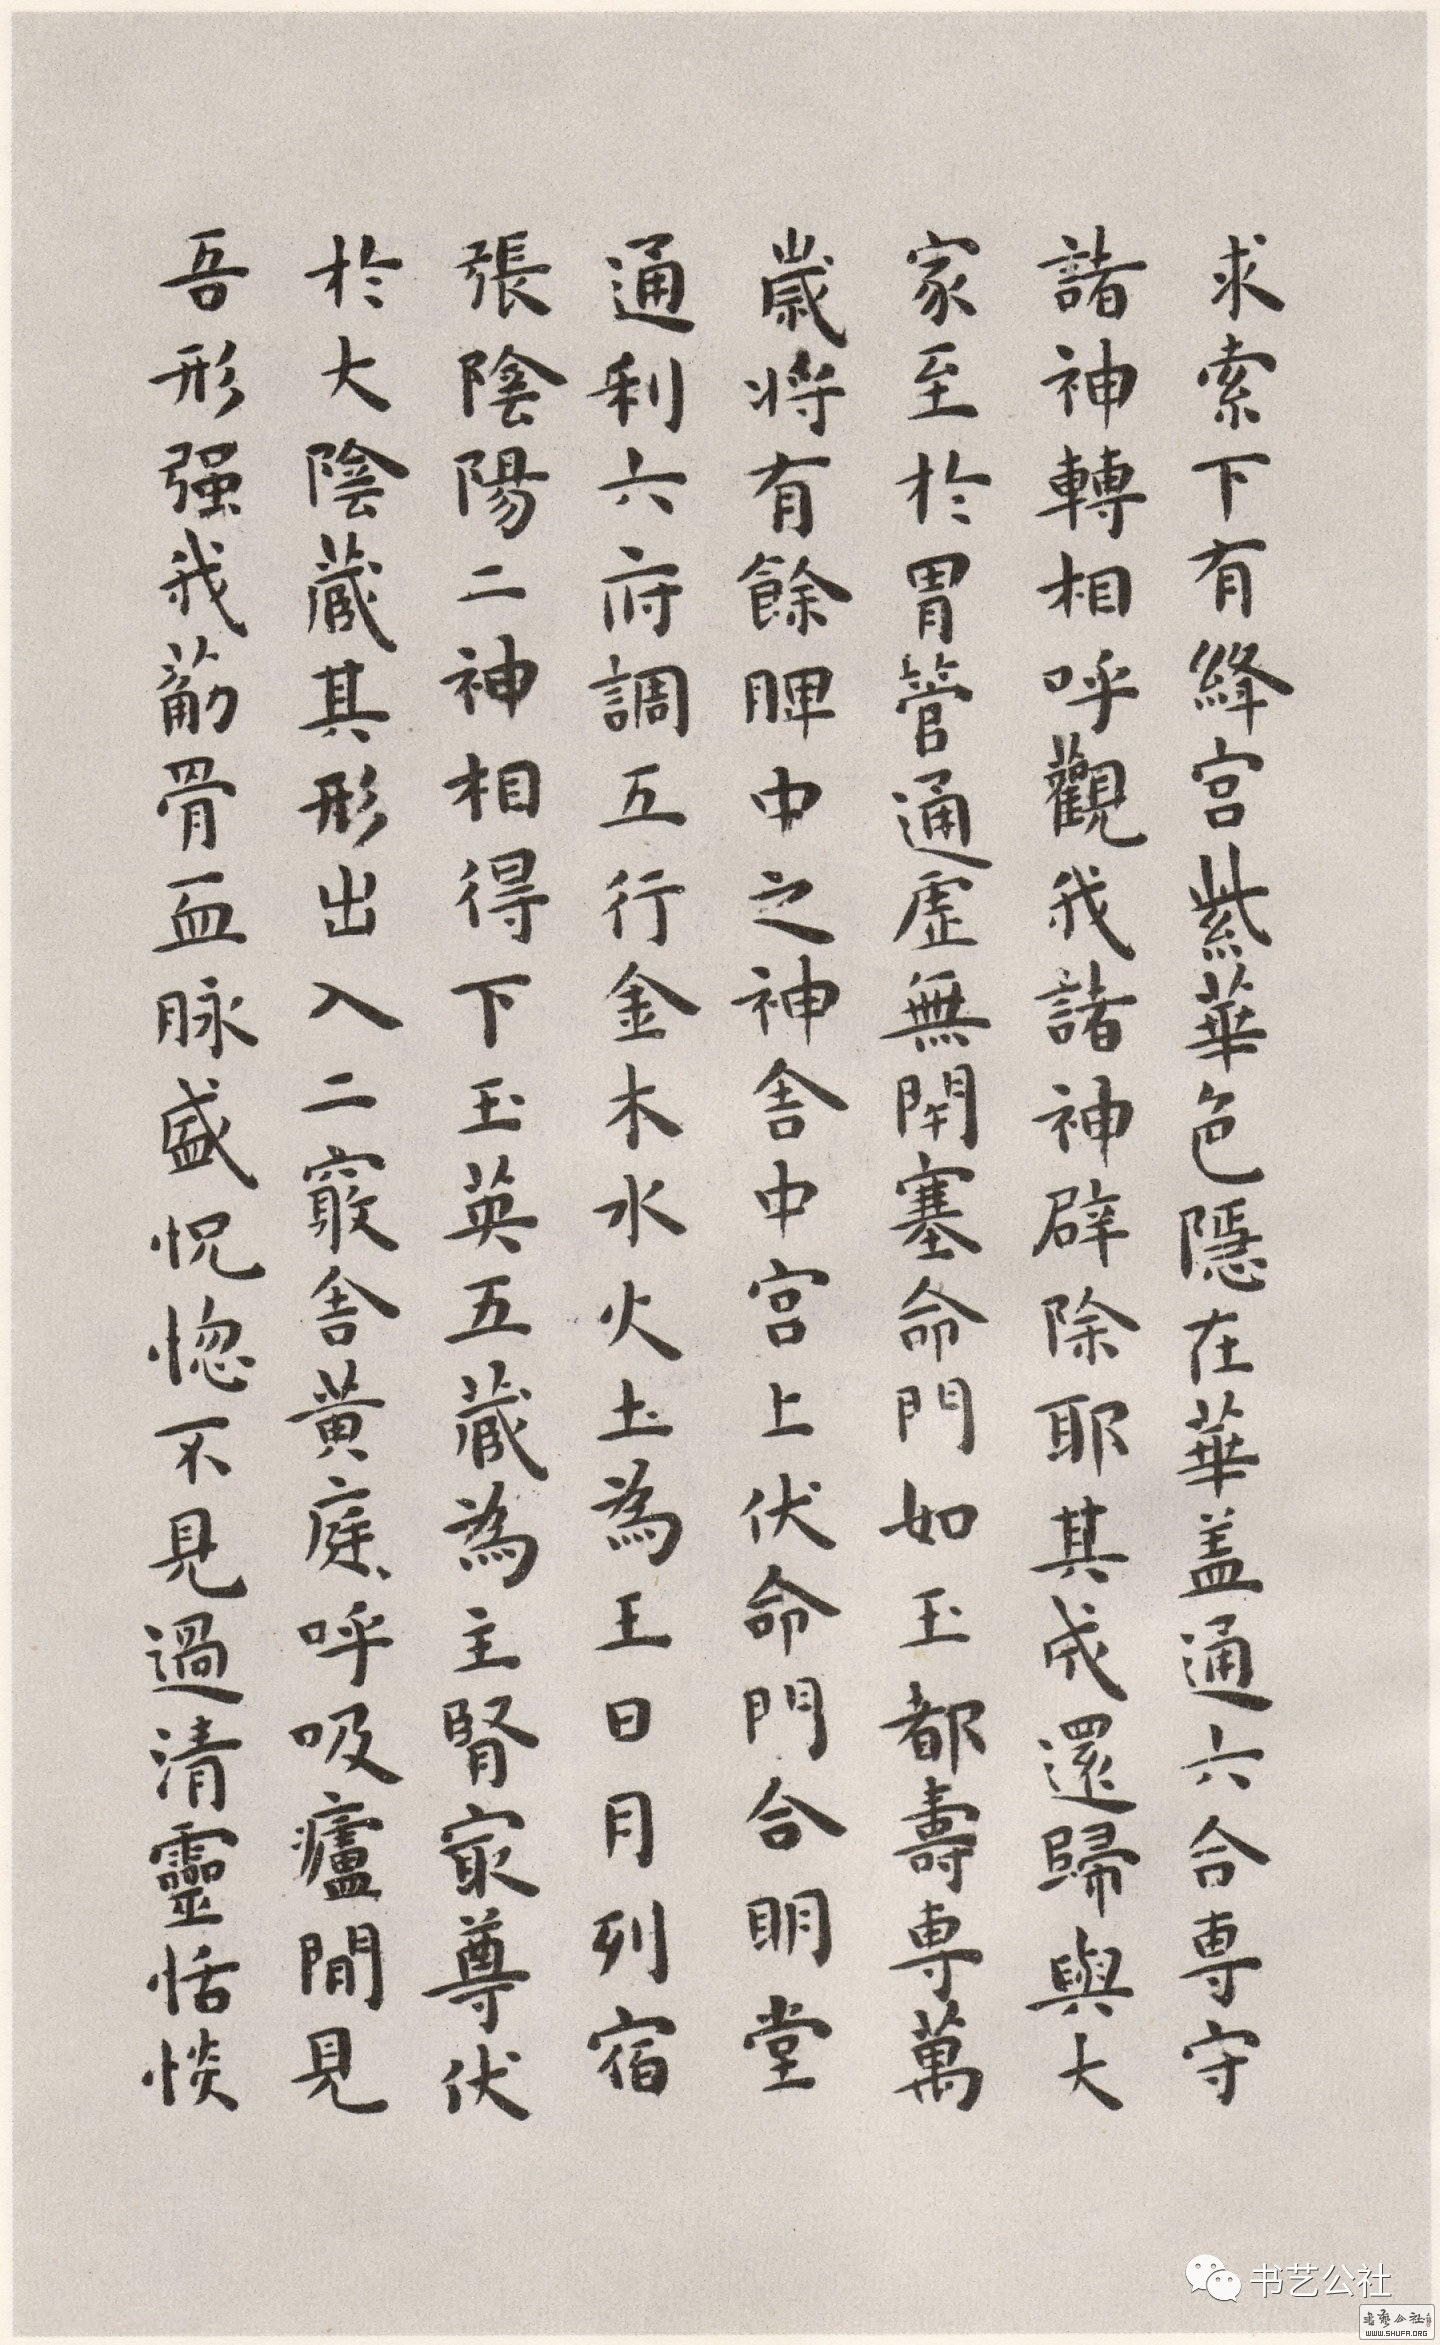 求索下有絳宮紫華色隱在華盖通六合専守
諸神轉相呼觀我諸神辟除耶其成還歸與大
家至於胃管通虛無閇塞命門如玉都壽専萬
歲将有餘脾中之神舍中宮上伏命門合明堂
通利六府調五行金木水火土為王日月列宿
張陰陽二神相得下玉英五藏為主腎冣尊伏
於大陰藏其形出入二竅舍黃庭呼吸廬間見
吾形强我筋骨血脉盛怳惚不見過清靈恬惔
书艺公社
书艺公社
WWW.SHUFA.ORG